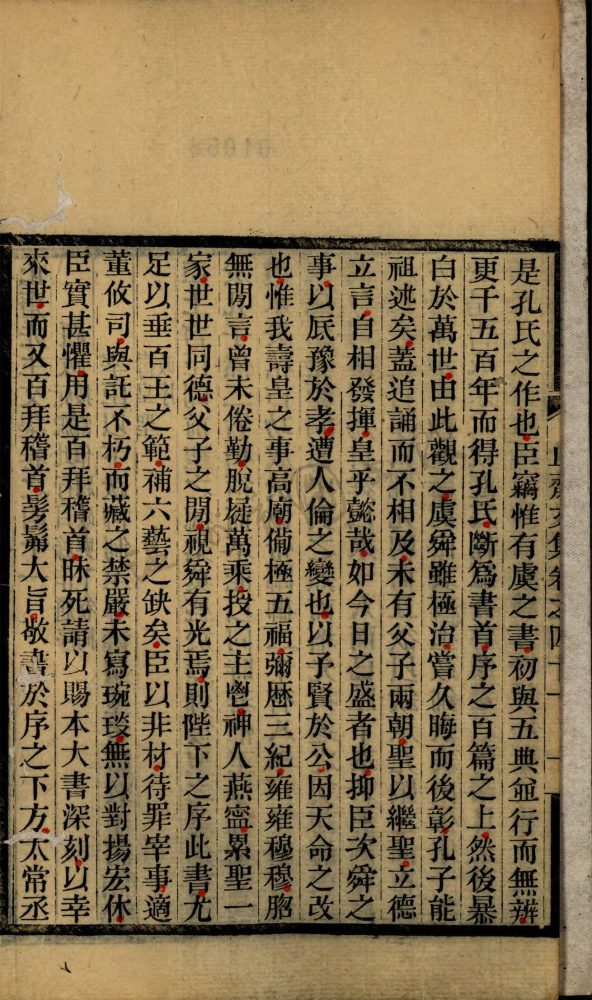 止齋文集卷之四十一
是孔氏之作也臣竊惟有虞之書初與五典並行而無辨
更千五百年而得孔氏斷爲書首序之百篇之上然後暴
白於萬世由此觀之虞舜雖極治嘗久晦而後彰孔子能
祖述矣蓋追誦而不相及未有父子兩朝聖以繼聖立德
立言自相發揮皇乎懿哉如今日之盛者也抑臣次舜之
事以底豫於孝遭人倫之變也以予賢於公因天命之改
也惟我壽皇之事高廟備極五福彌歷三紀雍雍穆穆胳
無閒言曾未倦勤脫屣萬乘投之主鬯神人燕寧累聖一
家世世同德父子之閒視舜有光焉則陛下之序此書尤
足以垂百王之範補六藝之缺矣臣以非材待罪宰事適
董攸司與託不朽而藏之禁嚴未寫琬琰無以對揚宏休
臣實甚懼用是百拜稽首昧死請以賜本大書深刻以幸
來世而又百拜稽首髣髴大旨敬書於序之下方太常丞